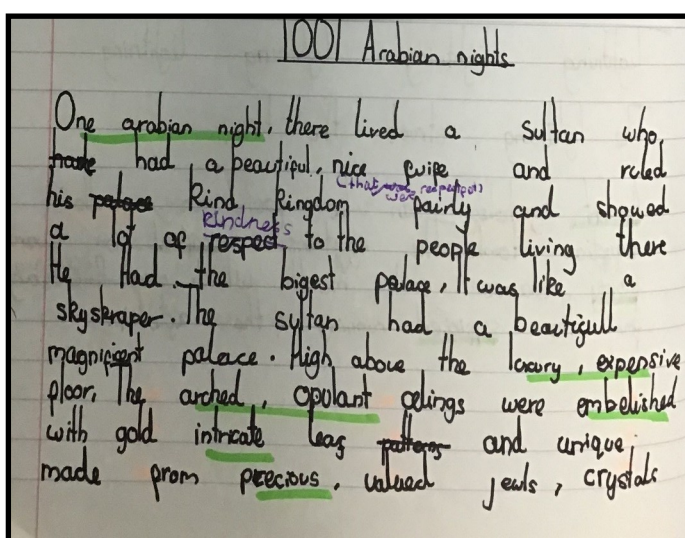 1001 Arabian nights
One arabian night, there lived a sultan who,
have had, a beautiful, nice wife and ruled
(that was were respectful)
his palace kind kingdom fairly and showed
kindness
a lot of respect to the people living there
He Had the bigest palace, It was like a
skyskraper. The sultan had a beautifull
magnificent palace. High above the luxury, expensive
floor, The arched, opulant celings were embelished
with gold intricate leaf patterns and unique,
made from precious, valued jewls, crystals